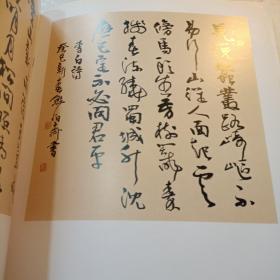 見說蠶叢路崎嶇不
易行山從人面起雲
傍馬頭生芳樹籠秦
棧春流繞蜀城升沈
應已定不必問君平
李白詩
癸巳新春 書
明月松間照